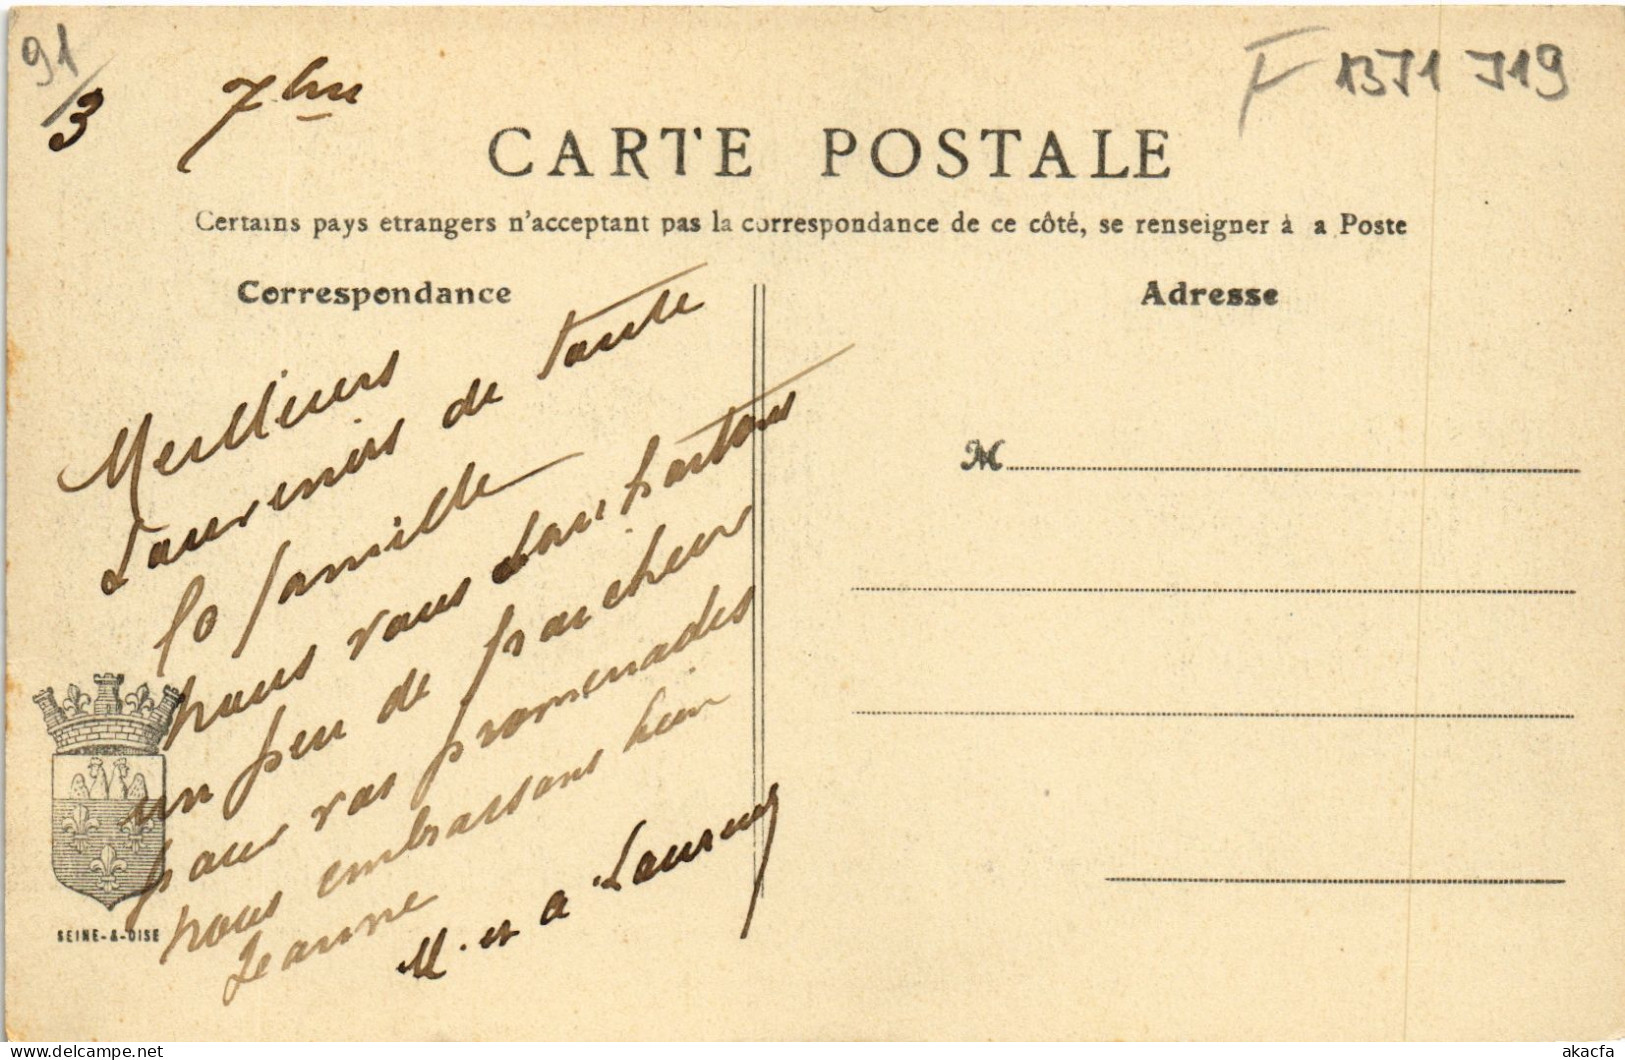 91/3
7bre
F 1371 719
CARTE POSTALE
Certains pays etrangers n'acceptant pas la correspondance de ce côté, se renseigner à a Poste
Correspondance
Adresse
Meilleurs
souvenirs de toute
la famille
nous vous souhaitons
un peu de fraicheur
pour vos promenades
nous embrassons bien
Jeanne
M. et A.
M
SEINE-&-OISE
akacfa